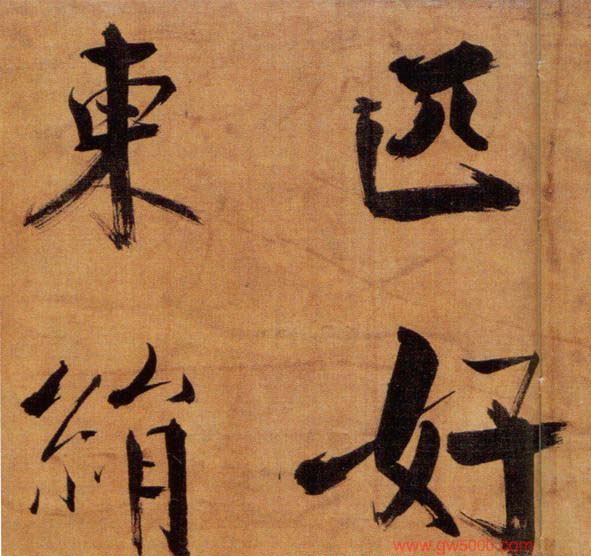 匹好
東絹
www.gw5000.com